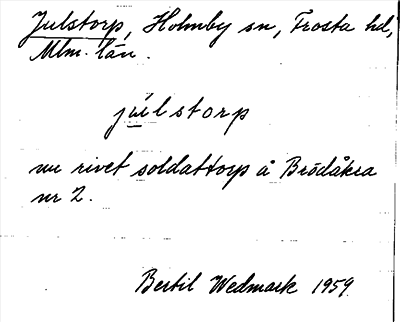 Julstorp, Holmby sn, Frosta hd,
Mlm. län.
júlstorp
nu rivet soldattorp å Brödåkra
nr 2.
Bertil Wedmark 1959.